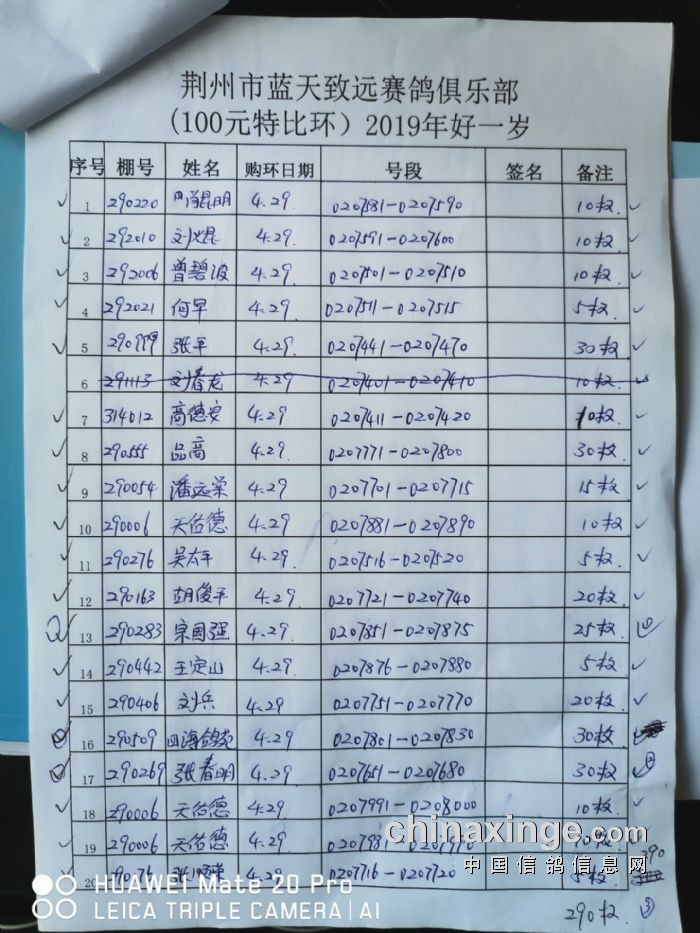 荆州市蓝天致远赛鸽俱乐部
(100元特比环) 2019年好一岁
序号 棚号 姓名 购环日期 号段 签名 备注
1 290220 4.29 0207581-0207590 10枚
2 292010 刘火焜 4.29 0207591-0207600 10枚
3 292006 曾碧波 4.29 0207501-0207510 10枚
4 292021 何早 4.29 0207511-0207515 5枚
5 张平 4.29 0207441-0207470 30枚
6 291113 刘春龙 4.29 0207401-0207410 10枚
7 314012 高德安 4.29 0207411-0207420 10枚
8 290555 品高 4.29 0207771-0207800 30枚
9 290054 潘远荣 4.29 0207701-0207715 15枚
10 290006 天佑德 4.29 0207881-0207890 10枚
11 290276 吴太平 4.29 0207516-0207520 5枚
12 290163 胡俊平 4.29 0207721-0207740 20枚
13 290283 宗国强 4.29 0207851-0207875 25枚
14 290442 王定山 4.29 0207876-0207880 5枚
15 290406 刘兵 4.29 0207751-0207770 20枚
16 290509 四海鸽苑 4.29 0207801-0207830 30枚
17 290269 张春明 4.29 0207651-0207680 30枚
18 290006 天佑德 4.29 0207991-0208000 10枚
19 290006 天佑德 4.29
chinaxinge.com
中国信鸽信息网
20 4.29 0207716-0207720 5枚
290
290枚 ③
HUAWEI Mate 20 Pro
LEICA TRIPLE CAMERA | AI